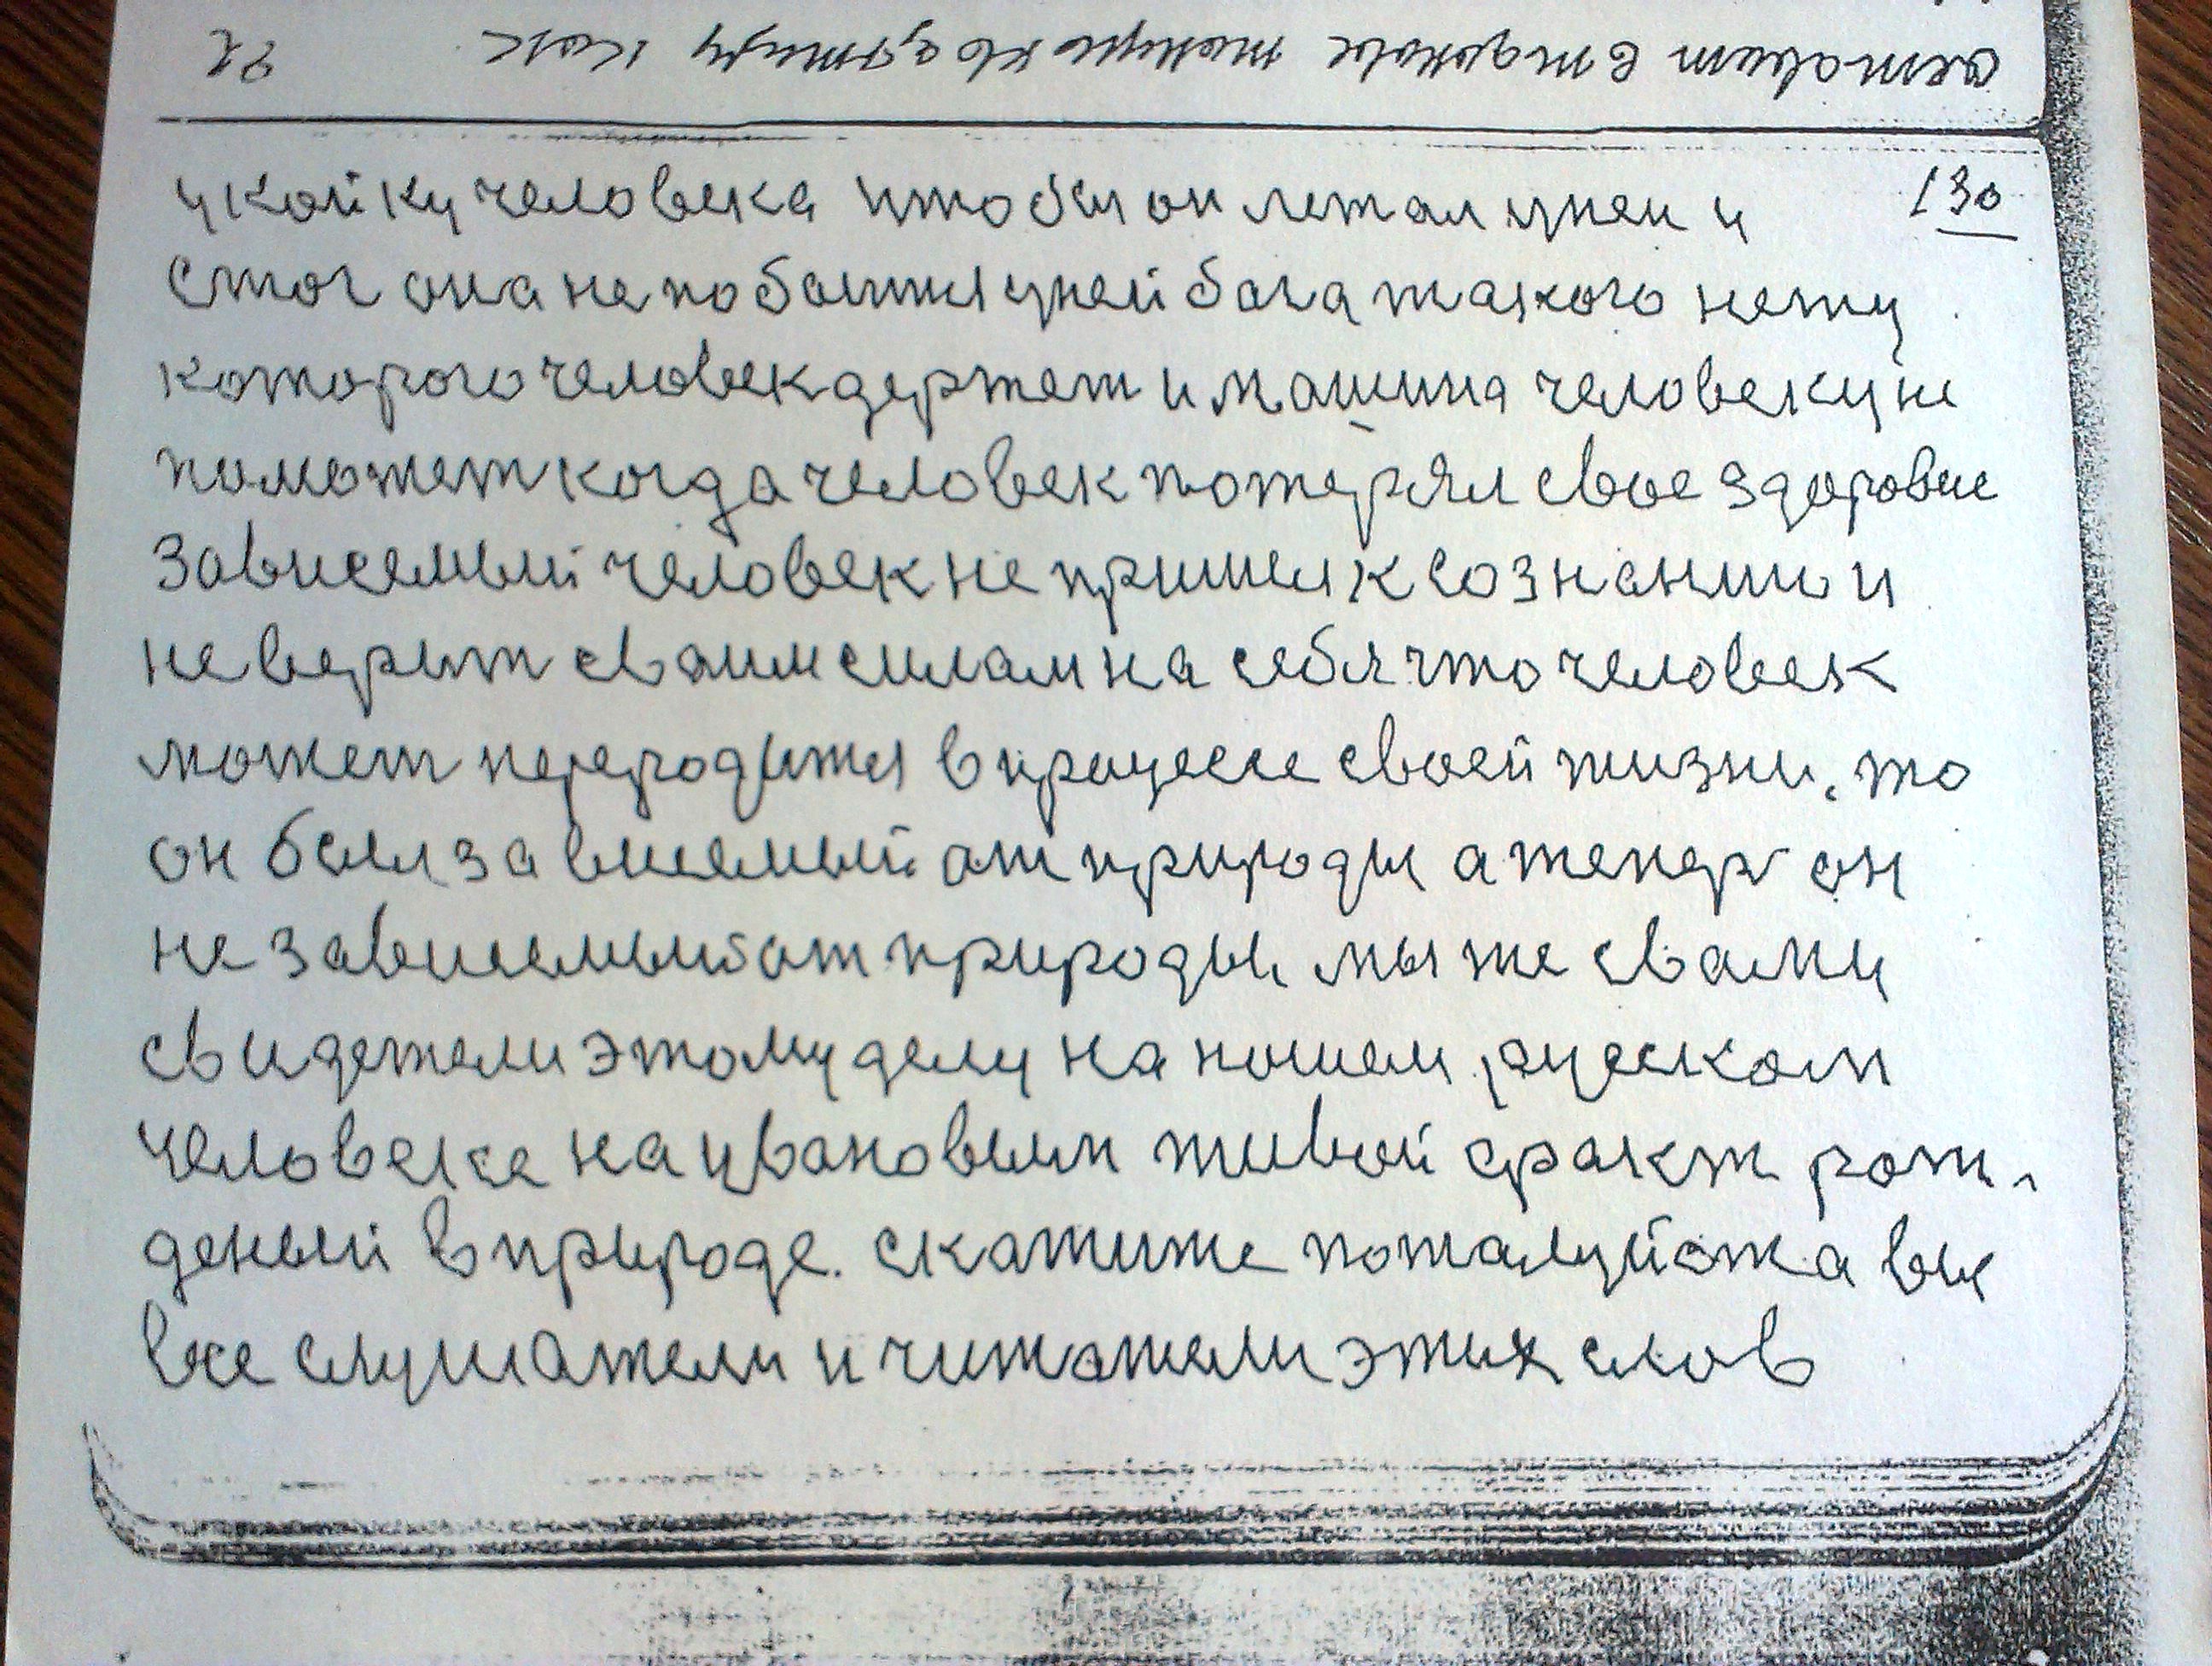 130
у койку человека штобы он летал у неи и
смог она не побоится у ней бога такого нету
которого человек держет и машина человеку не
поможет когда человек потерял свое здоровие
Зависемый человек не пришел к сознанию и
не верит сваим силам на себя что человек
может переродится в процессе своей жизни. то
он был зависемый от природы а тепер он
не зависемый от природы. мы же свами
свидетели этому делу на нашем русском
человеке на ивановым живой факт рож-
деный в природе. скажите пожалуйста вы
все слушатели и читатели этих слов